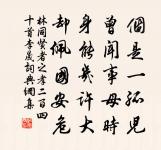 個是一孤兒
曾聞事母時
身能幾許大
却佩國安危
林同賢者之孝二百四
十首李晟詞典網集